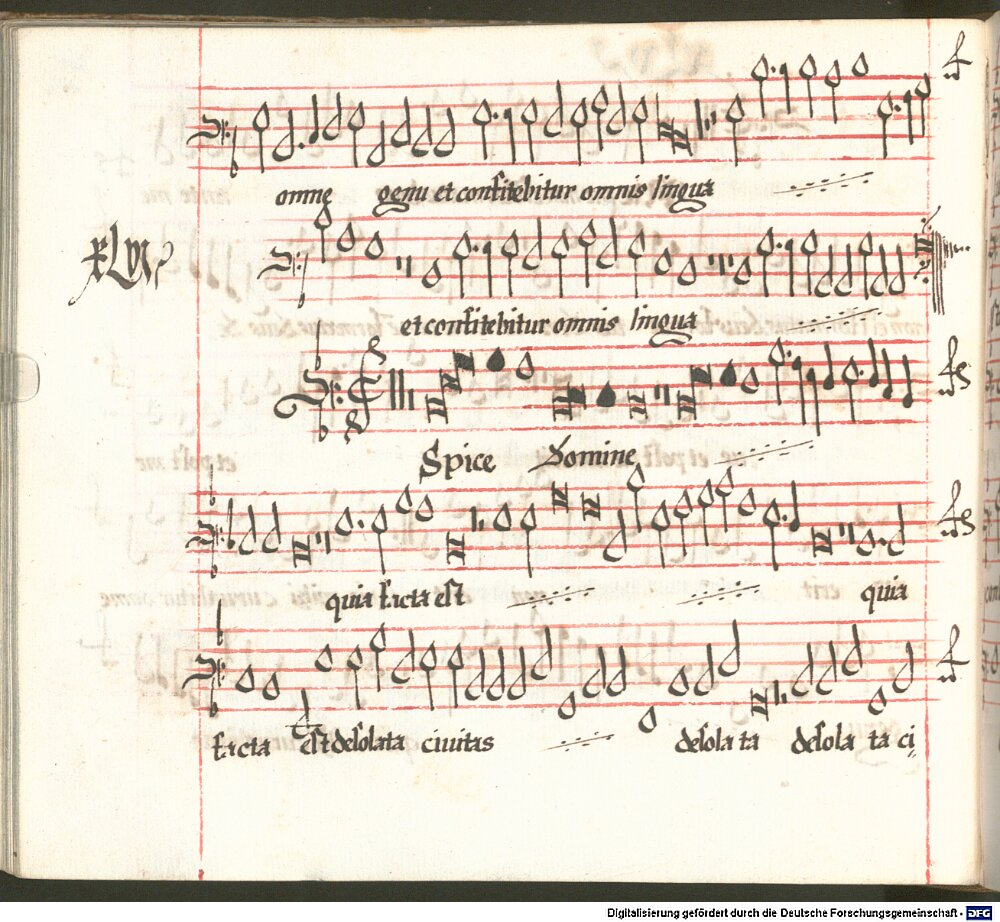 omne genu et confitebitur omnis lingua
XLVI
et confitebitur omnis lingua
Spice Domine
quia facta est quia
facta est desolata ciuitas desola ta desola ta ci
Digitalisierung gefördert durch die Deutsche Forschungsgemeinschaft - DFG